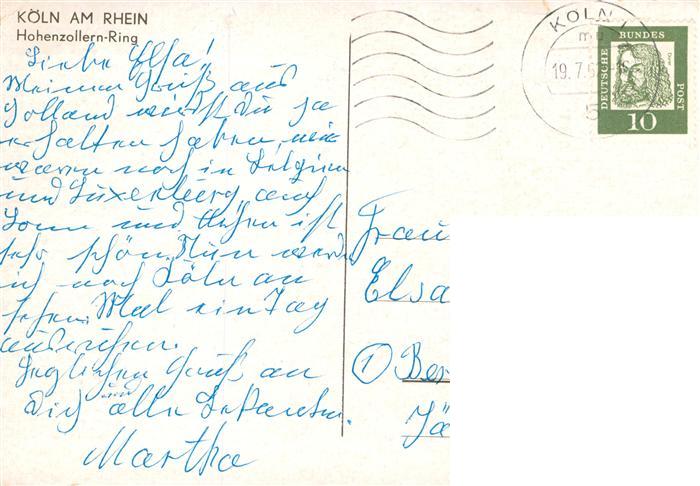 KÖLN AM RHEIN
Hohenzollern-Ring
Liebe Elsa!
Meinen Gruß aus
Holland wirst Du ja
erhalten haben, wir
waren noch in Belgien
und Luxenburg, auch
Bonn und ist
sehr schön. Nun werd
ich noch Köln an
sehen. Mal ein Tag
ausruhen.
Herzlichen Gruß an
Dich und alle Bekannten.
Martha
Frau
Elsa
① Ber
Jä
KÖLN
19.7.6
5
DEUTSCHE BUNDES POST
10